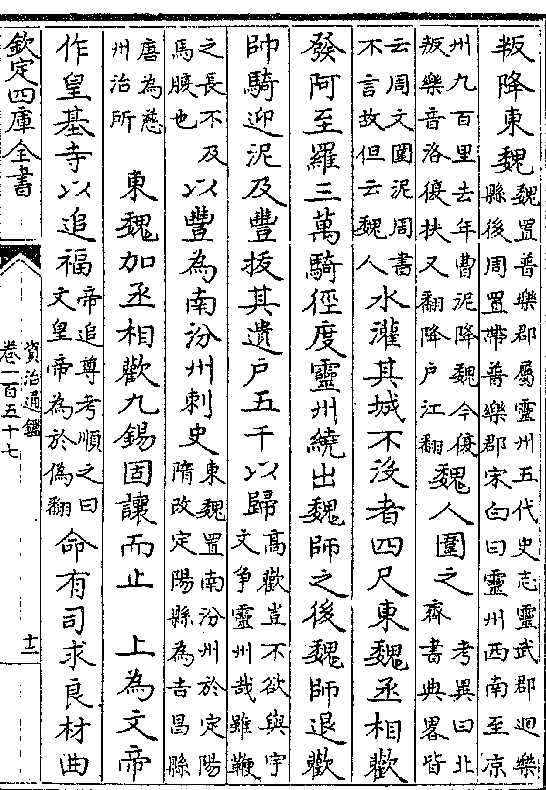 叛降東魏魏置普樂郡屬靈州五代史志靈武郡迴樂縣後周置帶普樂郡宋白曰靈州西南至凉
州九百里去年曹泥降魏今復叛樂音洛復扶又翻降户江翻魏人圍之考異曰北齊書典畧皆
云周文圍泥周書不言故但云魏人水灌其城不没者四尺東魏丞相歡
發阿至羅三萬騎徑度靈州繞出魏師之後魏師退歡
帥騎迎泥及豐拔其遺户五千以歸高歡豈不欲與宇文争靈州哉雖鞭
之長不及馬腹也以豐為南汾州刺史東魏置南汾州於定陽隋改定陽縣為吉昌縣
唐為慈州治所 東魏加丞相歡九錫固讓而止 上為文帝
作皇基寺以追福帝追尊考順之曰文皇帝為於偽翻命有司求良材曲
欽定四庫全書
資治通鑑
卷一百五十七
十二